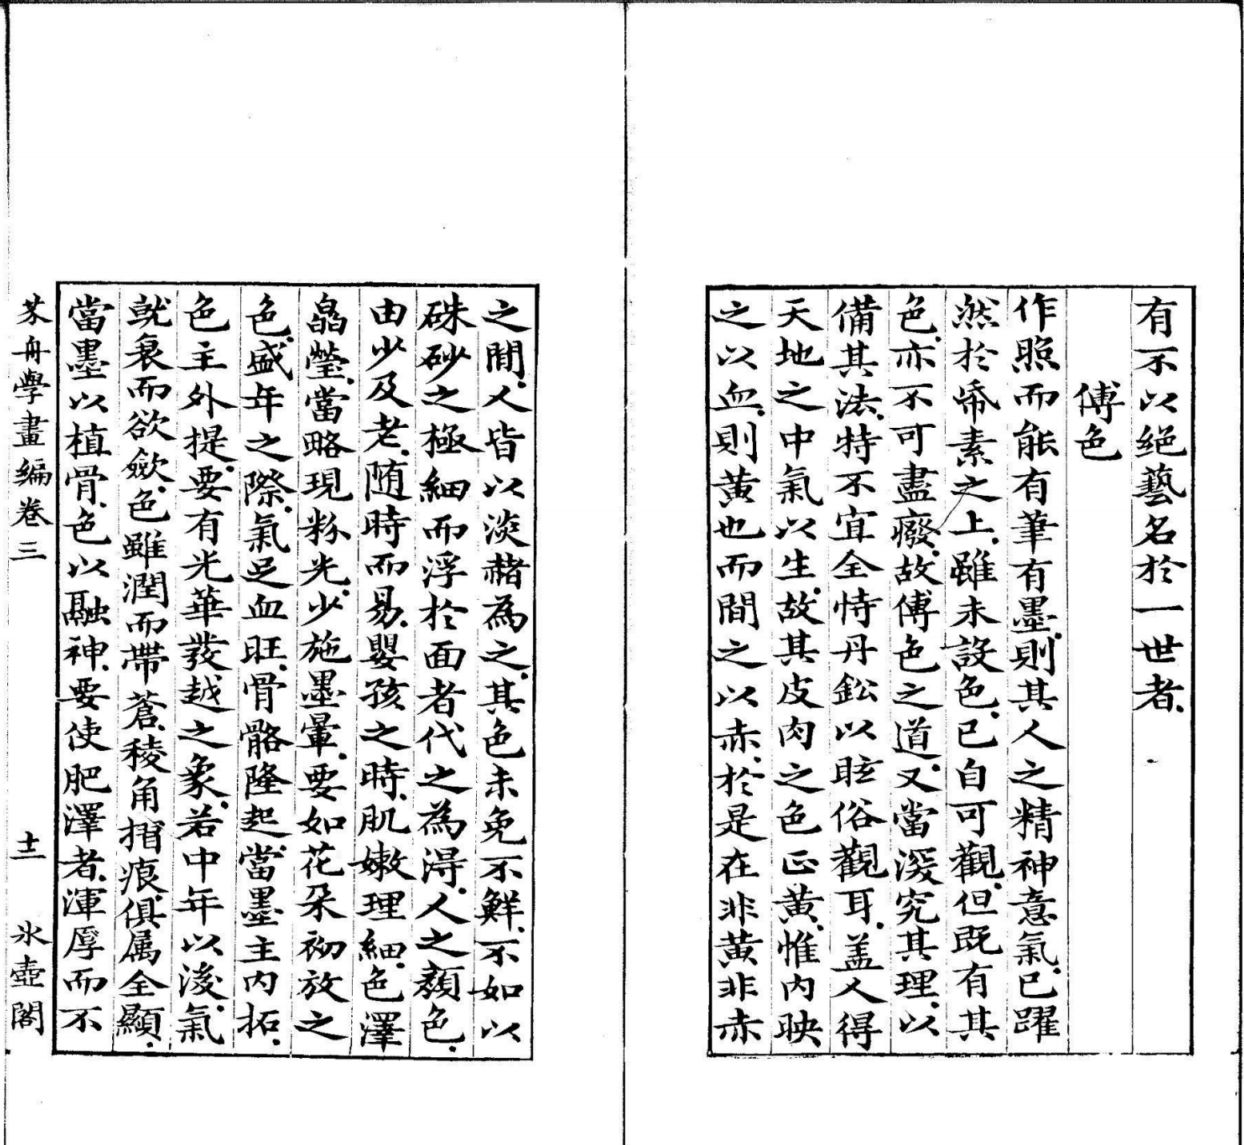 有不以絕藝名於一世者
傅色
作照而能有筆有墨則其人之精神意氣已躍
然於帋素之上雖未設色已自可觀但既有其
色亦不可盡癈故傅色之道又當深究其理以
備其法特不宜全恃丹鈆以眩俗觀耳盖人得
天地之中氣以生故其皮肉之色正黄惟内映
之以血則黄也而間之以赤於是在非黄非赤
之間人皆以淡赭為之其色未免不鮮不如以
硃砂之極細而浮於面者代之為淂人之顔色
由少及老随時而易嬰孩之時肌嫩理細色澤
晶瑩當略現粉光少施墨暈要如花朵初放之
色盛年之際氣足血旺骨骼隆起當墨主内拓
色主外提要有光華發越之象若中年以後氣
就衰而欲歛色雖潤而帶蒼稜角摺痕俱属全顯
當墨以植骨色以融神要使肥澤者渾厚而不
芥舟學畫編卷三
十二
氷壺閣